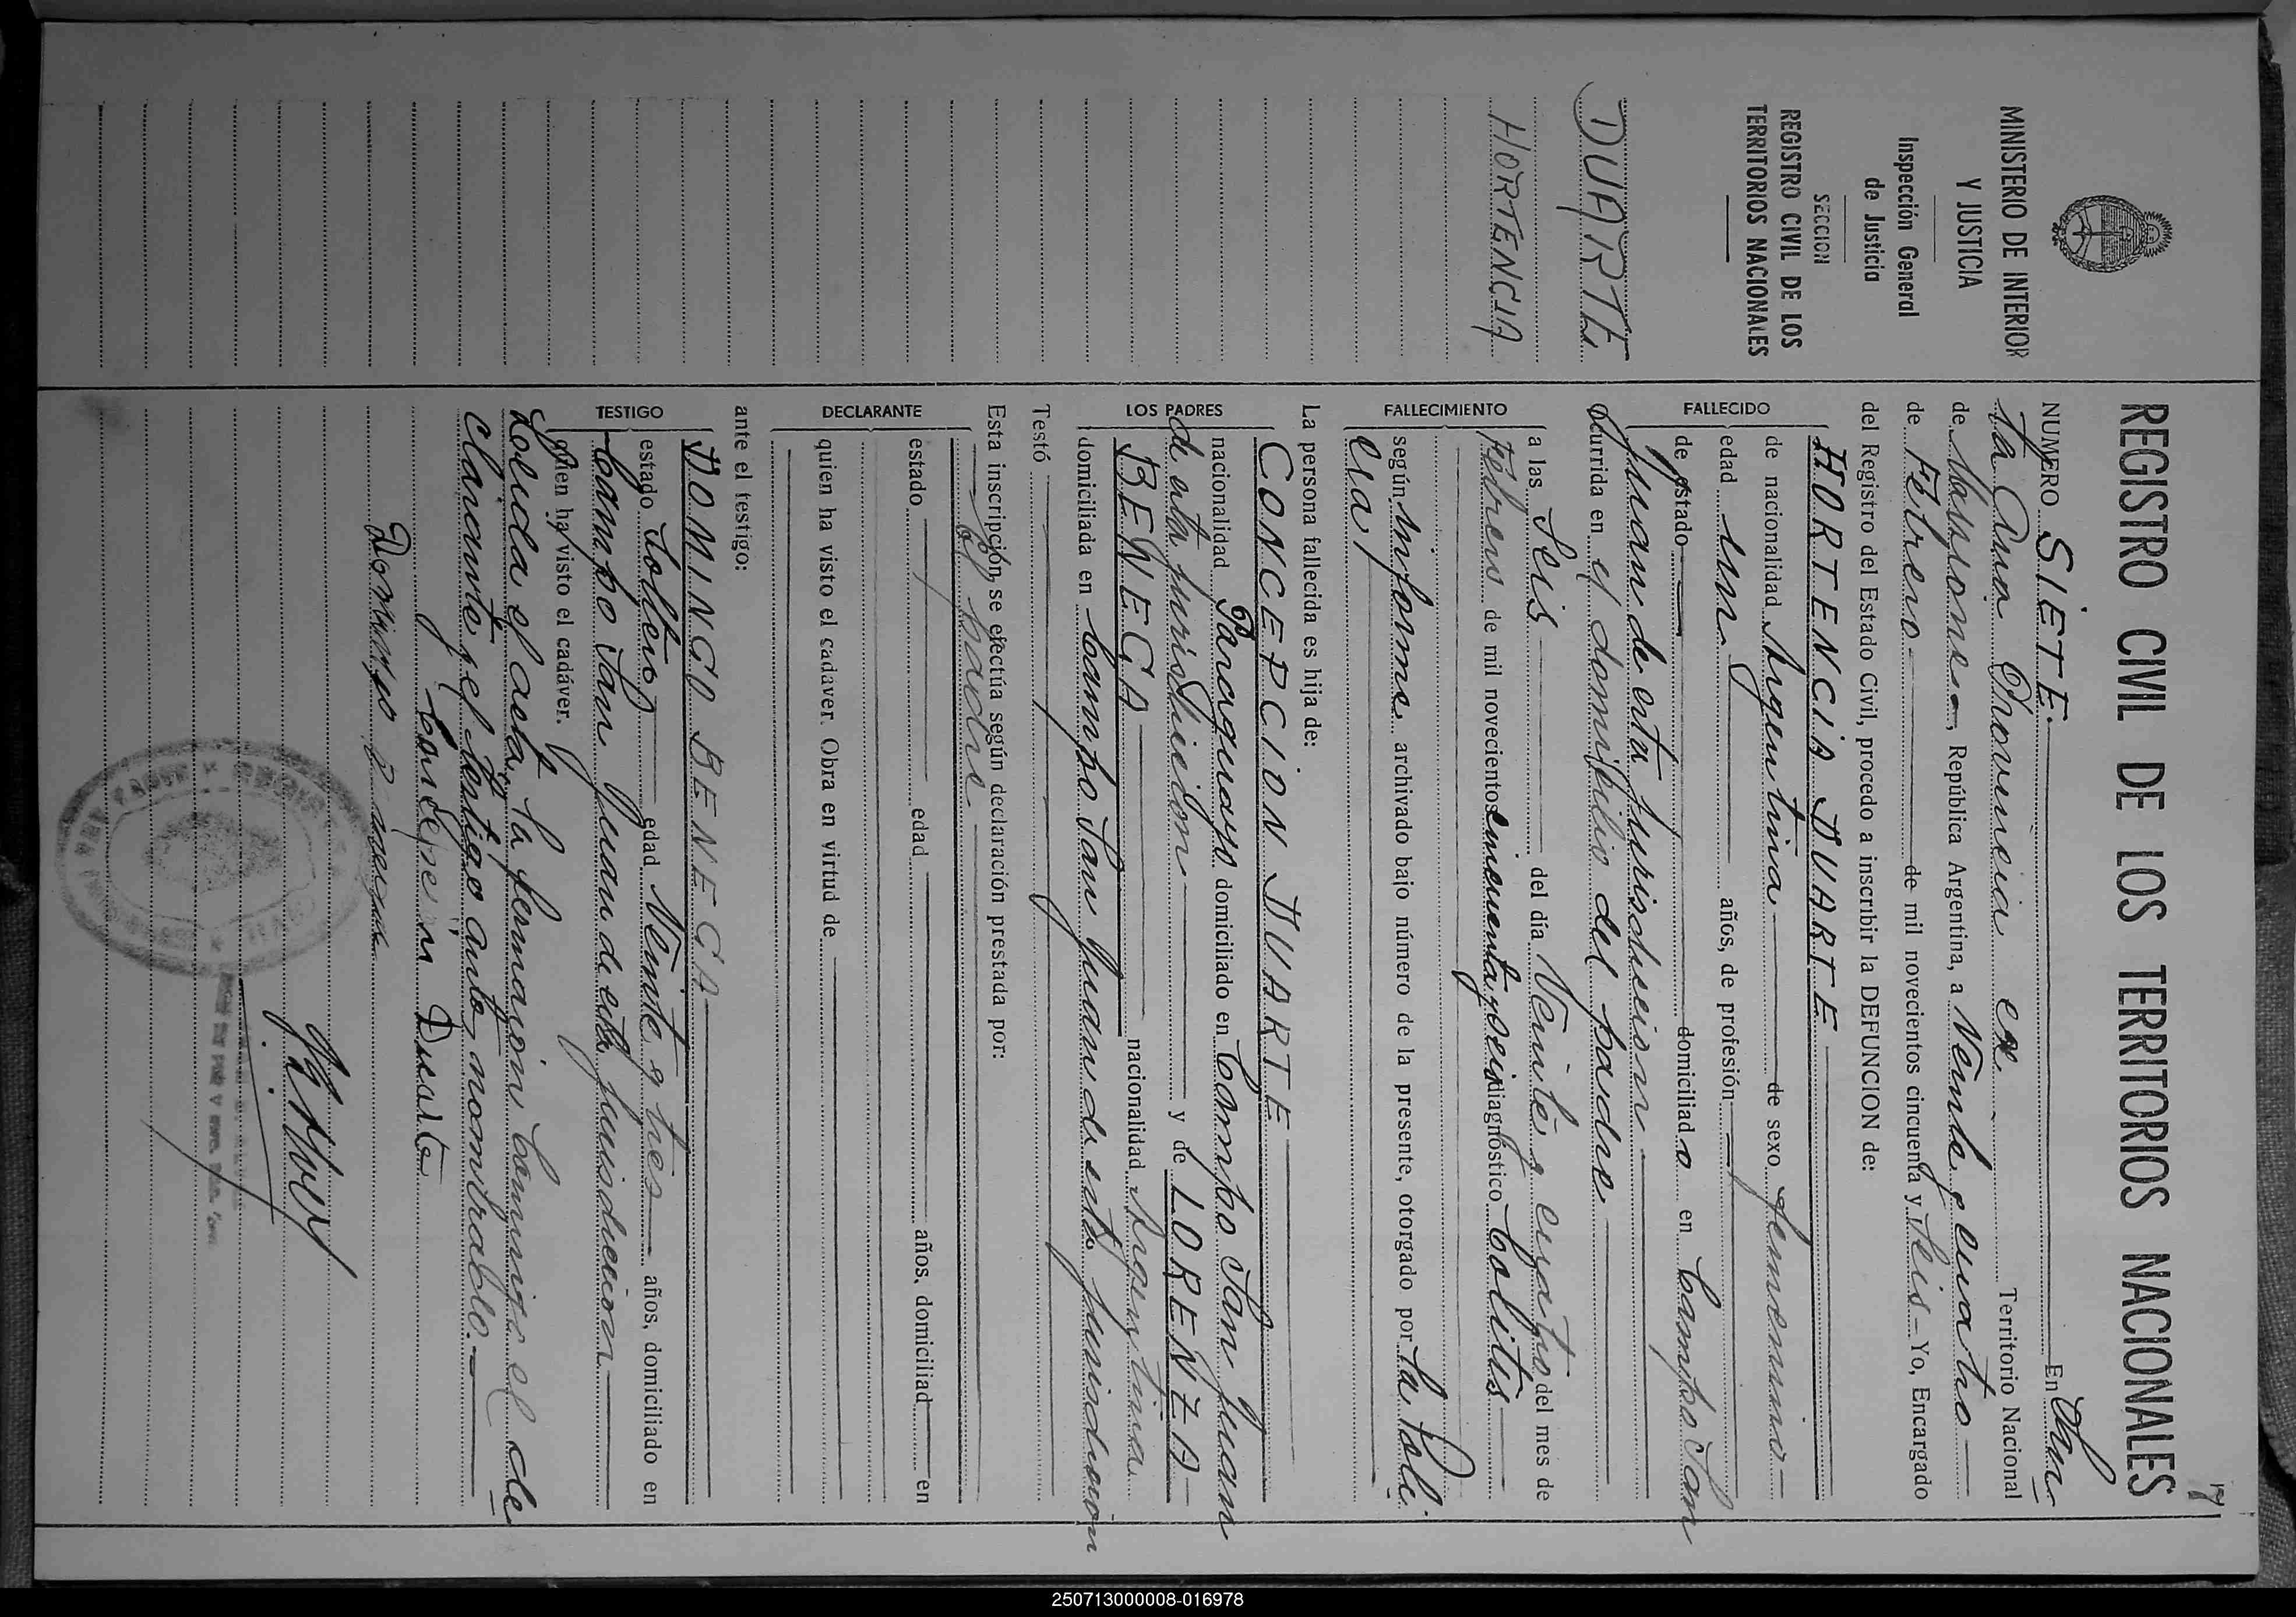 7
REGISTRO CIVIL DE LOS TERRITORIOS NACIONALES
MINISTERIO DE INTERIOR
Y JUSTICIA
Inspección General
de Justicia
SECCION
REGISTRO CIVIL DE LOS
TERRITORIOS NACIONALES
DUARTE
HORTENCIA
NUMERO SIETE. En San
ta Ana Provincia ex. Territorio Nacional
de Misiones, República Argentina, a Veinte y cuatro
de Febrero de mil novecientos cincuenta y Seis - Yo, Encargado
del Registro del Estado Civil, procedo a inscribir la DEFUNCION de:
FALLECIDO
HORTENCIA DUARTE
de nacionalidad Argentina de sexo femenino
edad un años, de profesión
de estado domiciliado en Campo San
Juan de esta jurisdiccion
FALLECIMIENTO
Ocurrida en el domicilio del padre
a las Seis del día Veinte y cuatro del mes de
Febrero de mil novecientos cincuenta y seis diagnóstico Colitis
según informe archivado bajo número de la presente, otorgado por la Poli
cia,
La persona fallecida es hija de:
LOS PADRES
CONCEPCION DUARTE
nacionalidad Paraguayo domiciliado en Campo San Juan
de esta jurisdiccion y de LORENZA
BENEGA nacionalidad Argentina
domiciliada en Campo San Juan de esta jurisdiccion
Testó
Esta inscripción, se efectúa según declaración prestada por:
DECLARANTE
El padre
estado edad años, domiciliad en
quien ha visto el cadaver. Obra en virtud de
ante el testigo:
TESTIGO
DOMINGO BENEGA
estado Soltero edad Veinte y tres años, domiciliado en
Campo San Juan de esta jurisdiccion
quien ha visto el cadáver.
Leida el acta, la firmaron conmigo el de
clarante y el testigo antes nombrado.
Duarte
Domingo
250713000008-016978